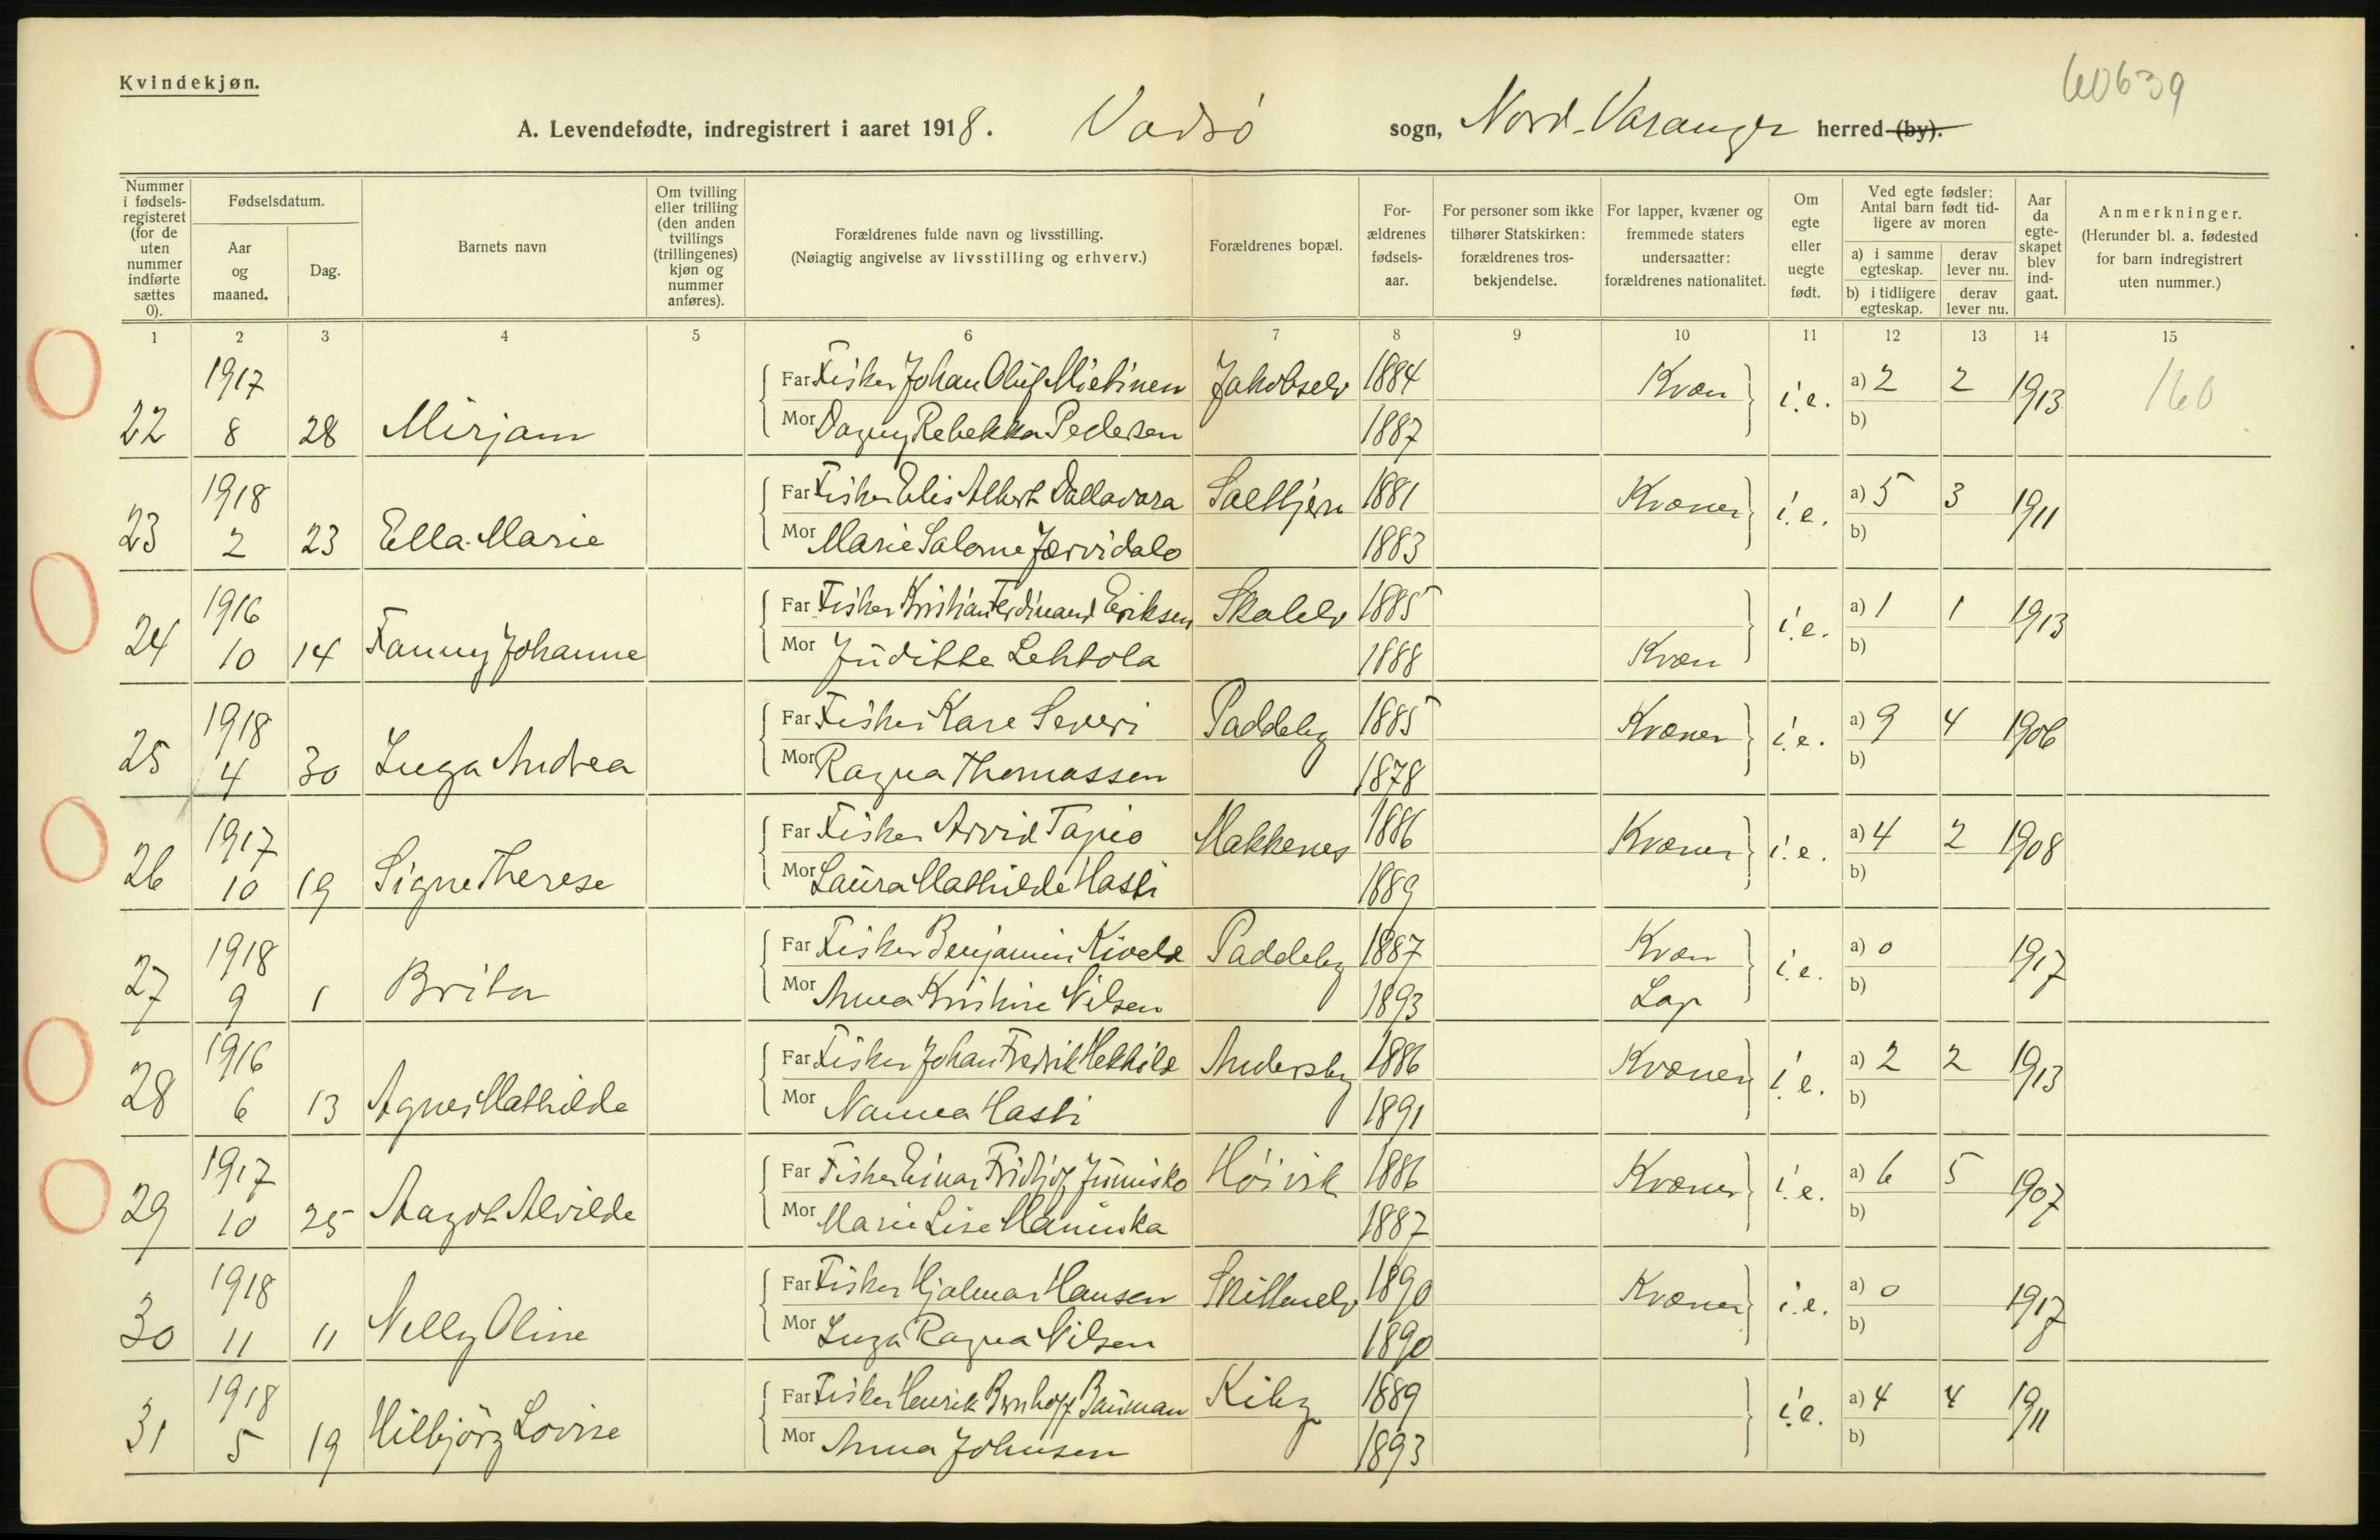 60639
Kvindekjøn.
A. Levendefødte, indregistrert i aaret 1918. Vadsö sogn, Nord-Varanger herred (by).
Nummer i fødsels-registeret (for de uten nummer indførte sættes 0).
Fødselsdatum.
Aar og maaned.
Dag.
Barnets navn
Om tvilling eller trilling (den anden tvillings (trillingenes) kjøn og nummer anføres).
Forældrenes fulde navn og livsstilling.
(Nøiagtig angivelse av livsstilling og erhverv.)
Forældrenes bopæl.
For-ældrenes fødsels-aar.
For personer som ikke tilhører Statskirken: forældrenes tros-bekjendelse.
For lapper, kvæner og fremmede staters undersaatter: forældrenes nationalitet.
Om egte eller uegte født.
Ved egte fødsler: Antal barn født tid-ligere av moren
a) i samme egteskap.
derav lever nu.
b) i tidligere egteskap.
derav lever nu.
Aar da egte-skapet blev ind-gaat.
Anmerkninger.
(Herunder bl. a. fødested for barn indregistrert uten nummer.)
1 2 3 4 5 6 7 8 9 10 11 12 13 14 15
1917 Far Fisker Johan Oluf Mietinen Jakobselv 1884 Kvæn i.e. a) 2 2 1913 160
22 8 28 Mirjam Mor Dagny Rebekka Pedersen 1887 b)
1918 Far Fisker Elis Albert Vallavara 1881 Kvæner i.e. a) 5 3 1911
23 2 23 Ella Marie Mor Marie Salome Jærvidalo 1883 b)
1916 Far Fisker Kristian Ferdinand Eriksen Skalelv 1885 i.e. a) 1 1 1913
24 10 14 Fanny Johanne Mor Juditte Lehtola 1888 Kvæn b)
1918 Far Fisker Kare Severi Paddeby 1885 Kvæner i.e. a) 9 4 1906
25 4 30 Inga Andrea Mor Ragna Thomassen 1878 b)
1917 Far Fisker Arvid Tapio Makkenes 1886 Kvæner i.e. a) 4 2 1908
26 10 19 Signe Therese Mor Laura Mathilde Hasti 1889 b)
1918 Far Fisker Benjamin Kivela Paddeby 1887 Kvæn i.e. a) 0 1917
27 9 1 Brita Mor Anna Kristine Nilsen 1893 Lap b)
1916 Far Fisker Johan Fredrik Heikkilæ Andersby 1886 Kvæner i.e. a) 2 2 1913
28 6 13 Agnes Mathilde Mor Nanna Hasti 1891 b)
1917 Far Fisker Einar Fridtjof Junnisko Höivik 1886 Kvæner i.e. a) 6 5 1907
29 10 25 Aagot Alvilde Mor Marie Lise 1887 b)
1918 Far Fisker Hjalmar Hansen Skittenelv 1890 Kvæner i.e. a) 0 1917
30 11 11 Nelly Oline Mor Inga Ragna Nilsen 1890 b)
1918 Far Fisker Henrik Bernhoff Bauman Kiby 1889 i.e. a) 4 4 1911
31 5 19 Hilbjörg Lovise Mor Anna Johnsen 1893 b)